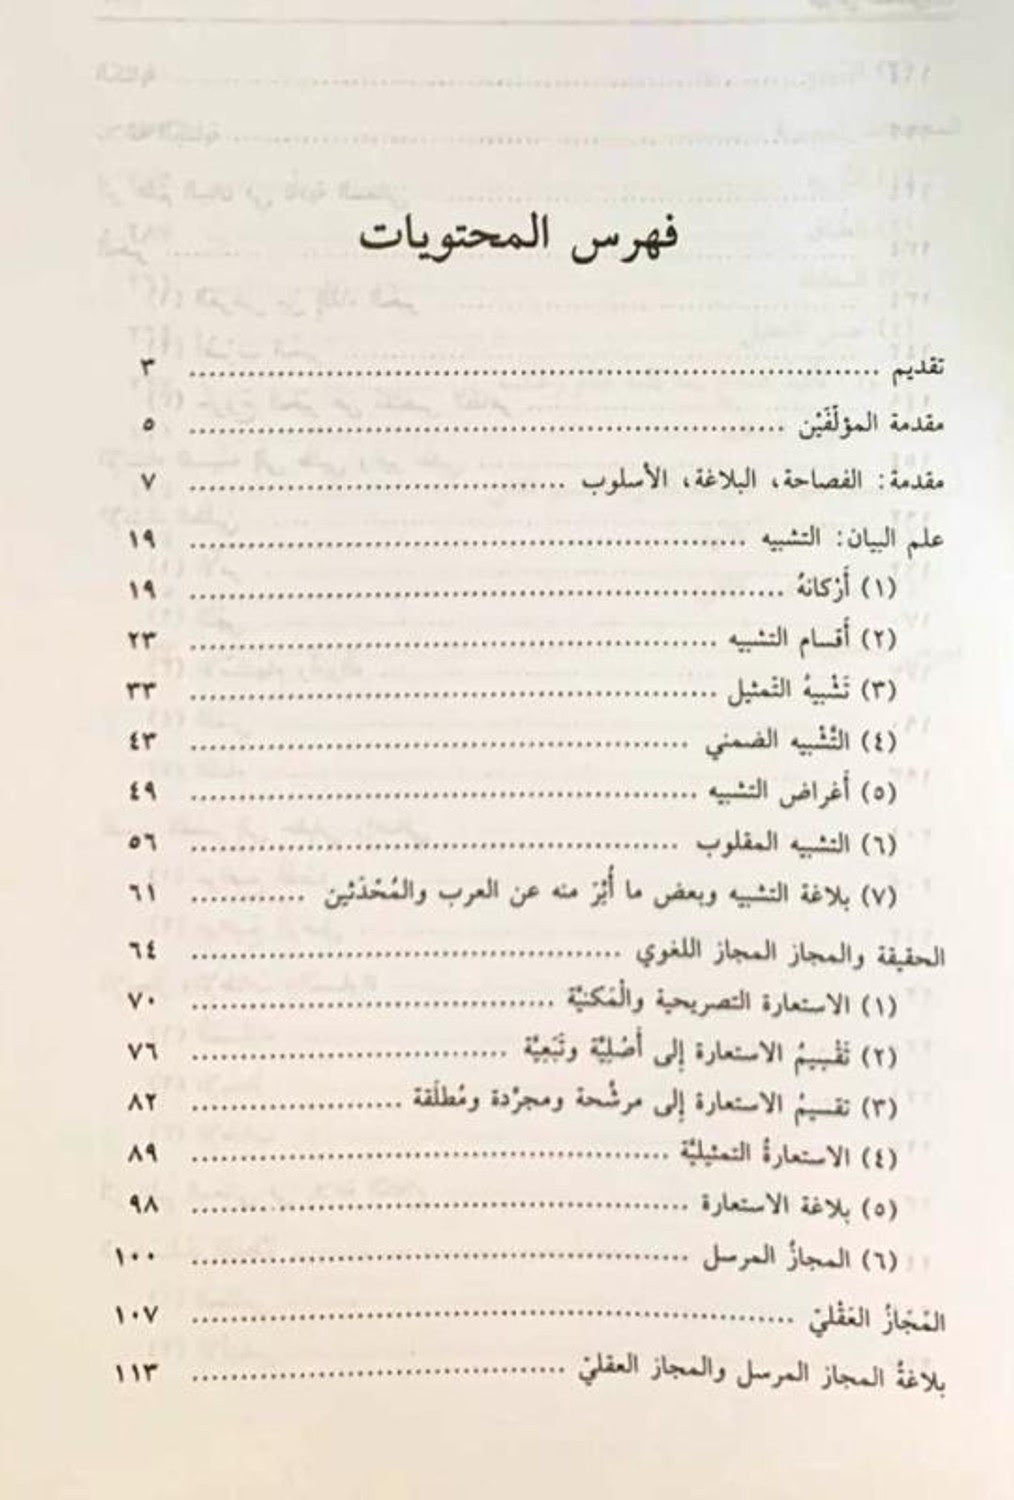 فهرس المحتويات
تقديم ........ ٣
مقدمة المؤلّفَيْن ........ ٥
مقدمة: الفصاحة، البلاغة، الأسلوب ........ ٧
علم البيان: التشبيه ........ ١٩
(١) أَرْكانهُ ........ ١٩
(٢) أقسام التشبيه ........ ٢٣
(٣) تَشْبيهُ التَمثيل ........ ٣٣
(٤) التَّشْبيه الضمني ........ ٤٣
(٥) أغراض التشبيه ........ ٤٩
(٦) التشبيه المقلوب ........ ٥٦
(٧) بلاغة التشبيه وبعض ما أُثِرَ منه عن العرب والمُحْدَثين ........ ٦١
الحقيقة والمجاز المجاز اللغوي ........ ٦٤
(١) الاستعارة التصريحية والْمَكنيَّة ........ ٧٠
(٢) تَقْسِيمُ الاستعارة إلى أَصْلِيَّة وتَبَعِيَّة ........ ٧٦
(٣) تقسيمُ الاستعارة إلى مرشَّحة ومجرَّدة ومُطلَقة ........ ٨٢
(٤) الاستعارةُ التمثيليَّة ........ ٨٩
(٥) بلاغة الاستعارة ........ ٩٨
(٦) المجازُ المرسل ........ ١٠٠
المَجَازُ العَقْليّ ........ ١٠٧
بلاغةُ المجاز المرسل والمجاز العقليّ ........ ١١٣